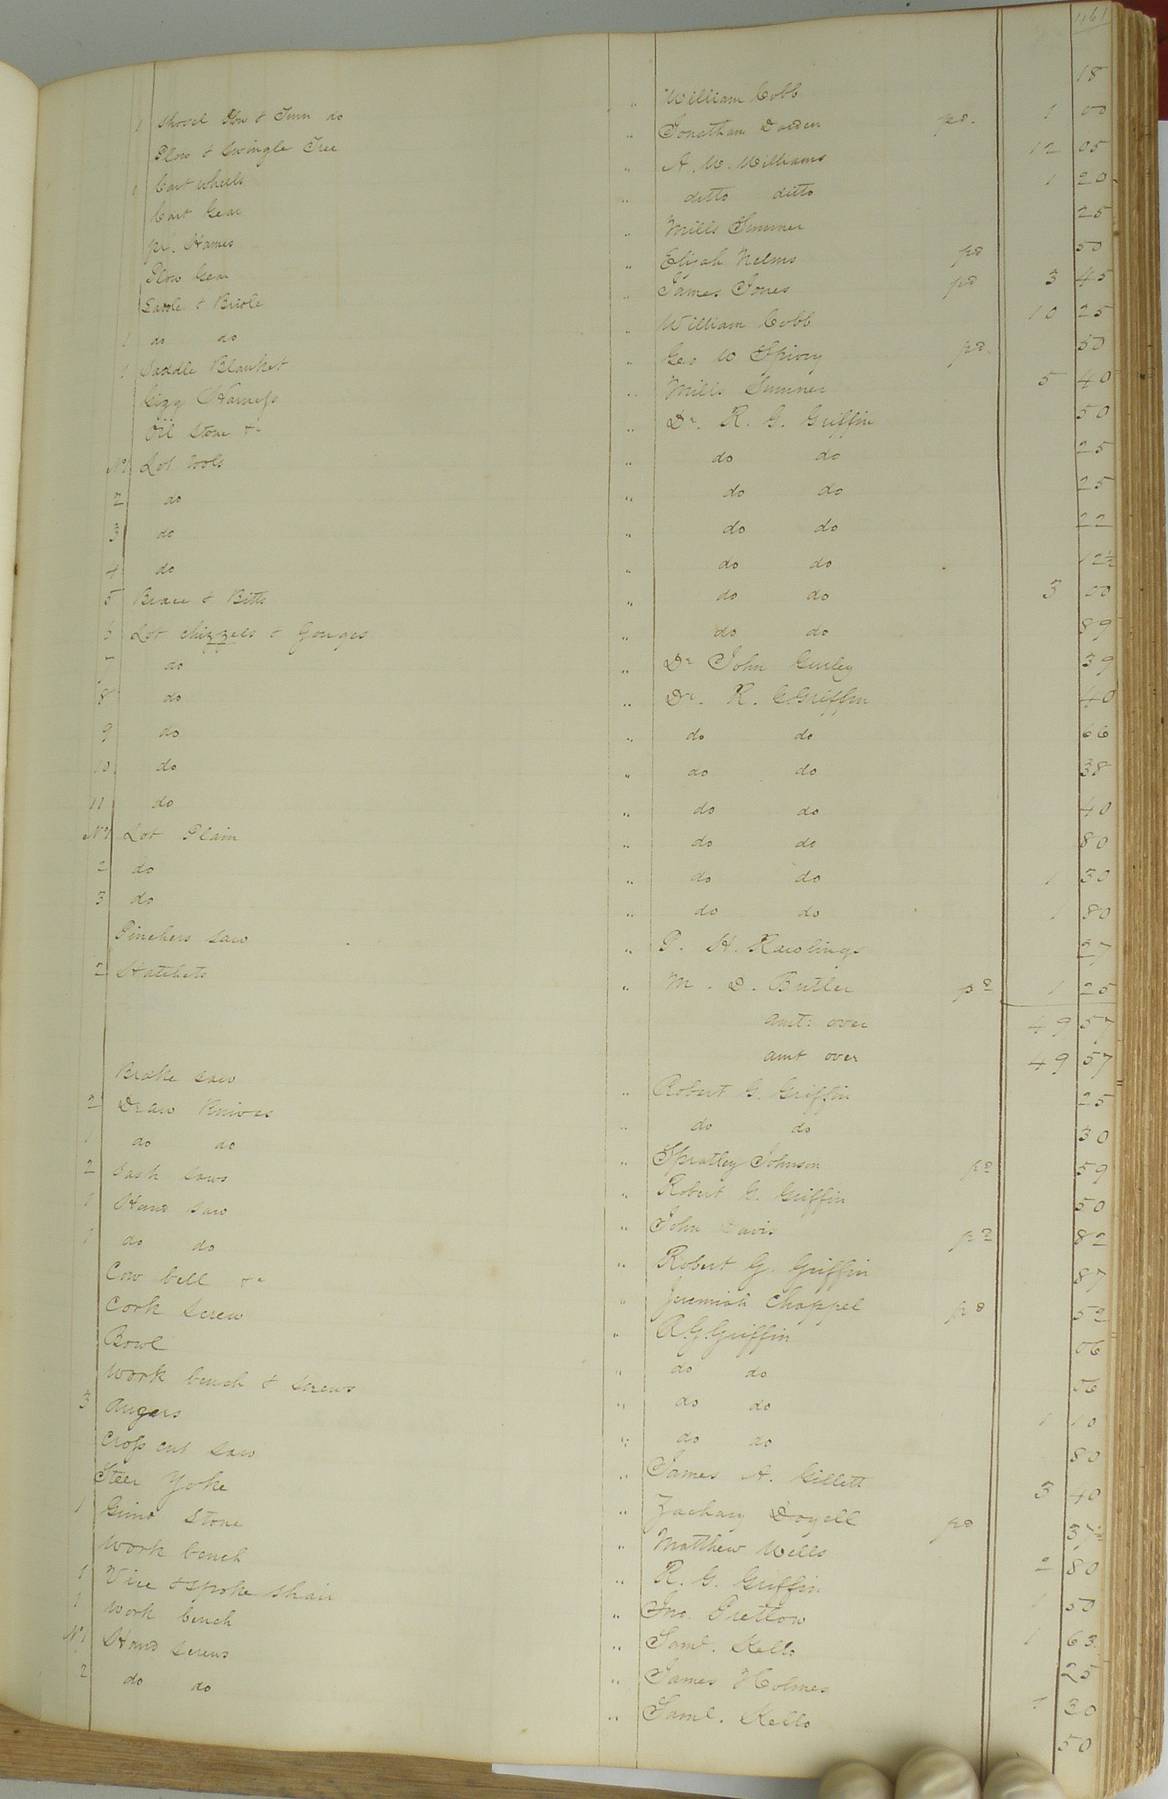 461
1 Shovel Plow & Turn do " William Cobb 18
Plow & Swingle Tree " Jonathan Darden pd. 1 00
1 Cart wheels " A. W. Williams 12 05
Cart Gear " ditto ditto 1 20
pr. Hames " Mills Sumner 25
Plow Gear " Elijah Nelms pd 50
Saddle & Bridle " James Jones pd 3 45
1 do do " William Cobb 10 25
1 Saddle Blanket " Geo W Spivey pd. 50
Gigg Harness " Mills Sumner 5 40
Oil Stone &c " Dr. R. G. Griffin 50
No 1 Lot tools " do do 25
2 do " do do 25
3 do " do do 22
4 do " do do 12½
5 Brace & Bitts " do do 3 00
6 Lot chizzels & Gouges " do do 89
7 do " Dr John Gurley 39
8 do " Dr. R. G Griffin 40
9 do " do do 66
10 do " do do 38
11 do " do do 40
No 1 Lot Plain " do do 80
2 do " do do 1 30
3 do " do do 1 80
Pinchers saw " P. H. Rawlings 27
2 Hatchets " M. D. Butler pd 1 25
amt: over 49 57
amt over 49 57
Broke saw " Robert G. Griffin 25
2 Draw Knives " do do 30
1 do do " Spratley Johnson pd 59
2 Sash Saws " Robert G. Griffin 50
1 Hand Saw " John Davis pd 82
1 do do " Robert G. Griffin 87
Cow bell &c " Jeremiah Chappel pd 52
Cork Screw " R. G. Griffin 06
Bowl " do do 56
Work bench & screws " do do 1 10
3 augers " do do 80
Cross cut saw " James A. Gillett 3 40
Steer Yoke " Zachary Doyell pd 37½
1 Grind Stone " Matthew Wells 2 80
Work bench " R. G. Griffin 1 50
1 Vice & spoke shair " Jno. Pretlow 1 63
1 Work bench " Saml. Kello 25
No 1 Hand screws " James Holmes 1 30
2 do do " Saml. Kello 50